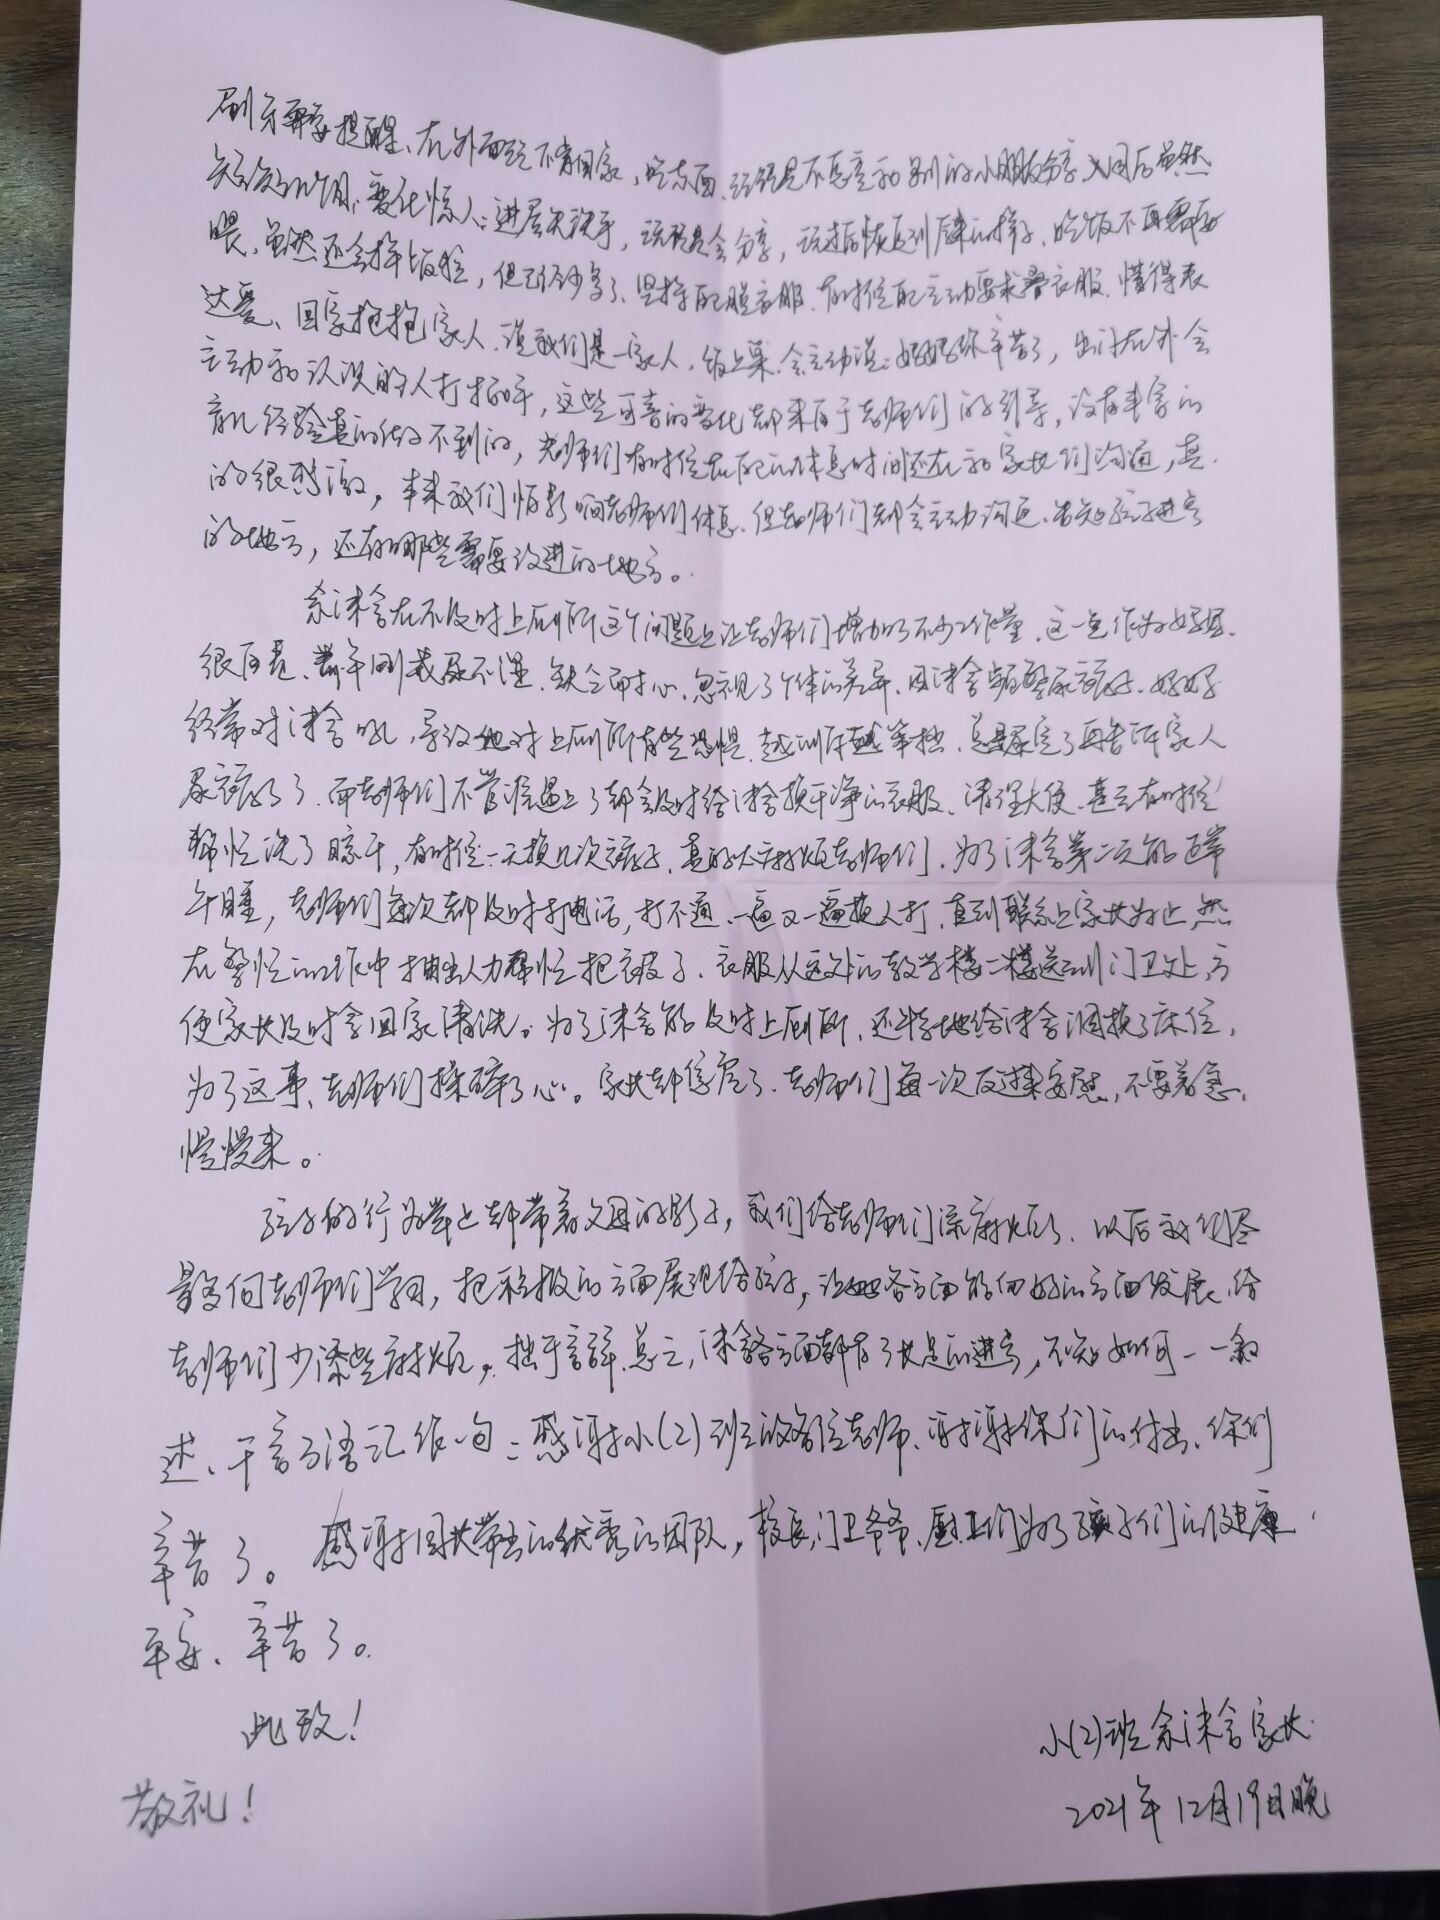 刷牙再要提醒、在外面玩不肯回家，吃东西、玩玩具不愿意和别的小朋友分享，入园后虽然
短短几个月，变化惊人：进屋先洗手，玩玩具会分享，玩过后恢复到原来的样子，吃饭不再需要
喂，虽然还会掉饭粒，但已经少多了、坚持自己脱衣服，有时候自己主动要求叠衣服、懂得表
达爱、回家抱抱家人，说我们是一家人，给上菜，会主动说：妈妈你辛苦了，出门在外会
主动和认识的人打招呼，这些可喜的变化都来自于老师们的引导，没有丰富的
育儿经验真的做不到的，老师们有时候在自己的休息时间还在和家长们沟通，真
的很感激，本来我们怕影响老师们休息，但老师们都会主动沟通，告知孩子进步
的地方，还有哪些需要改进的地方。
余沫含在不及时上厕所这个问题上让老师们增加了不少工作量，这一点作为妈妈
很自责、当年刚戒尿不湿，缺乏耐心，忽视了个体的差异，因沫含尿裤子，妈妈
经常对沫含吼，导致她对上厕所有些恐惧，越训斥越笨拙，总是尿完了再告诉家人
尿裤子了，而老师们不管谁遇上了都会及时给沫含换干净的衣服、清理大便、甚至有时候
帮忙洗了晾干，有时候一天换几次裤子，真的太麻烦老师们，为了沫含第二天能正常
午睡，老师们每次都及时打电话，打不通，一遍又一遍换人打，直到联系上家长为止，然
在繁忙的工作中抽出人力帮忙把衣被子、衣服从这处的教学楼二楼送到门卫处，方
便家长及时拿回家清洗。为了沫含能及时上厕所，还特地给沫含调换了床位，
为了这事、老师们操碎了心。家长都 了，老师们每一次反过来安慰，不要着急，
慢慢来。
孩子的行为举止都带着父母的影子，我们给老师们添麻烦了，以后我们尽
量多向老师们学习，把积极的方面展现给孩子，让她各方面能向好的方面发展，给
老师们少添些麻烦。拙于言辞，总之，沫含各方面都有了长足的进步，不知如何一一叙
述、千言万语汇作一句：感谢小(2)班的各位老师、谢谢你们的付出、你们
辛苦了。感谢园长带出的优秀的团队，校长，门卫爷爷、厨卫们为了孩子们的健康
平安、辛苦了。
此致！
敬礼！
小(2)班余沫含家长
2021年12月19日晚